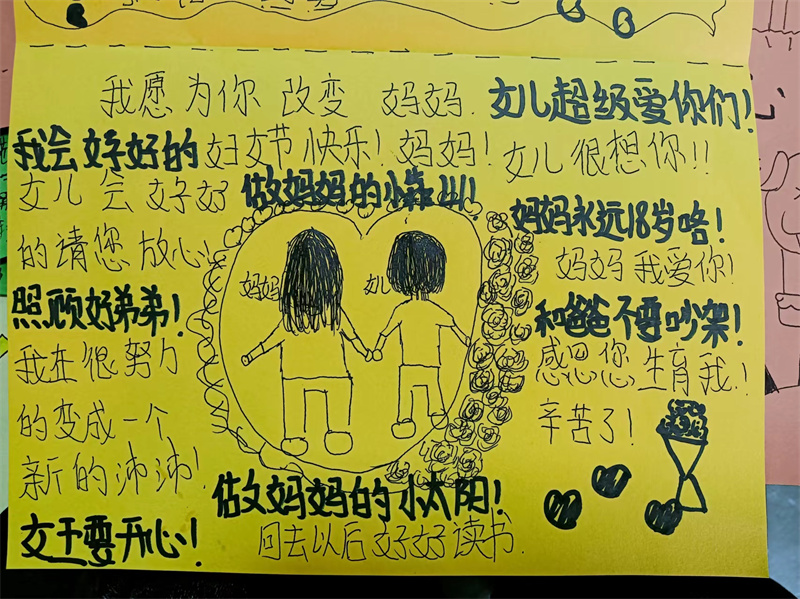 我愿为你改变 妈妈. 女儿超级爱你们!
我会好好的 妇女节快乐! 妈妈! 女儿很想你!!
女儿会好好 做妈妈的小靠山!
妈妈永远18岁咯!
的请您放心! 妈妈我爱你!
妈妈 女儿
照顾好弟弟! 和爸爸不要吵架!
我在很努力 感恩您生育我!
的变成一个 辛苦了!
新的沛沛!
做妈妈的小太阳!
要开心! 回去以后好好读书.